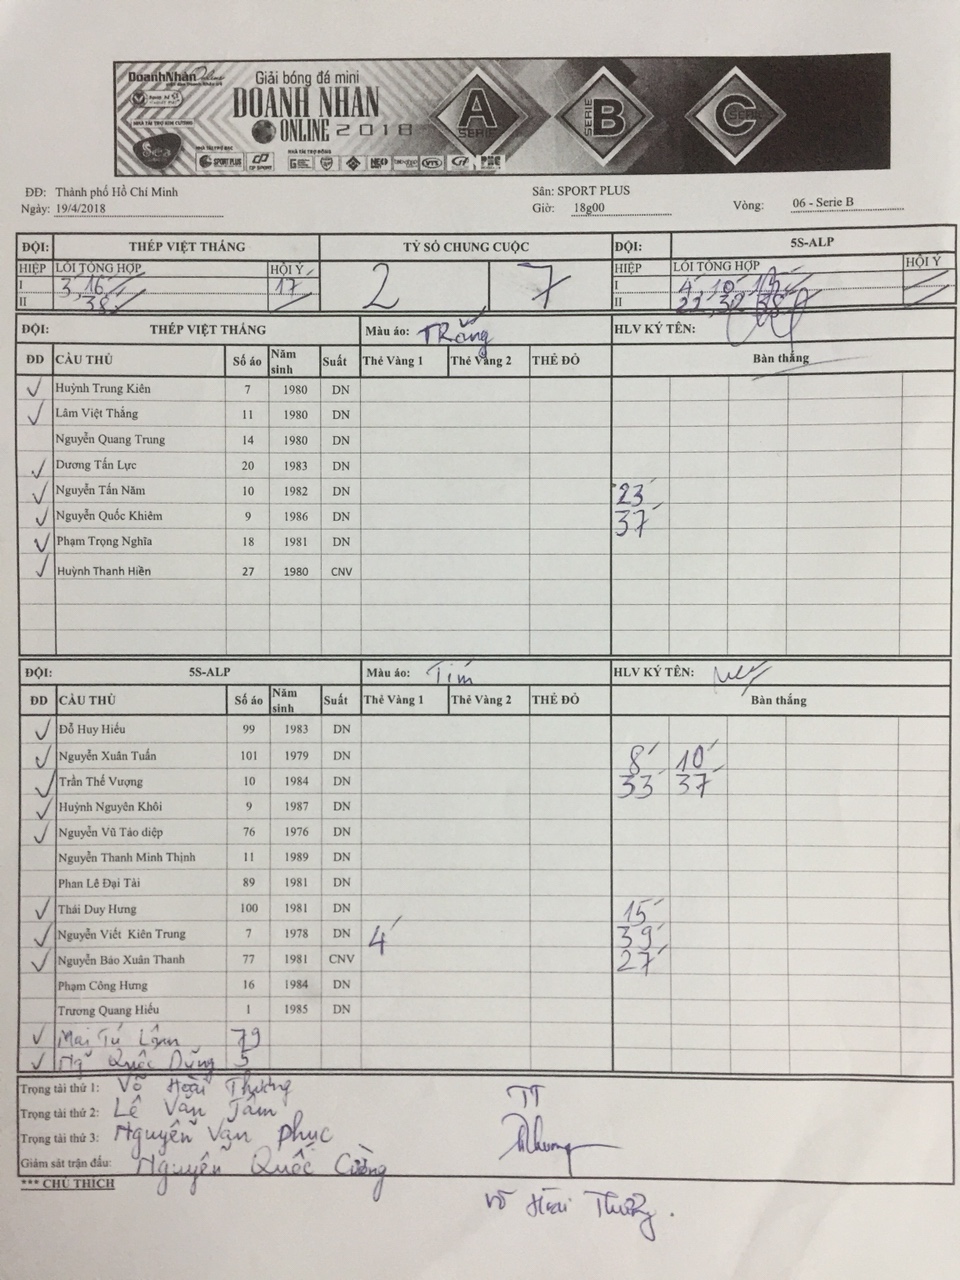 DoanhNhanOnline
Giải bóng đá mini
DOANH NHAN
ONLINE 2018
NHÀ TÀI TRỢ KIM CƯƠNG
Sea
SPORT PLUS
A SERIE
SERIE B
C SERIE
ĐĐ: Thành phố Hồ Chí Minh
Sân: SPORT PLUS
Ngày: 19/4/2018
Giờ: 18g00
Vòng: 06 - Serie B
ĐỘI: THÉP VIỆT THẮNG TỶ SỐ CHUNG CUỘC ĐỘI: 5S-ALP
HIỆP LỖI TỔNG HỢP HỘI Ý 2 7 HIỆP LỖI TỔNG HỢP HỘI Ý
I 3' 16' 17' I 4' 10'
II 38' II 38'
ĐỘI: THÉP VIỆT THẮNG Màu áo: TRắng HLV KÝ TÊN:
ĐD CẦU THỦ Số áo Năm sinh Suất Thẻ Vàng 1 Thẻ Vàng 2 THẺ ĐỎ Bàn thắng
✓ Huỳnh Trung Kiên 7 1980 DN
✓ Lâm Việt Thắng 11 1980 DN
Nguyễn Quang Trung 14 1980 DN
✓ Dương Tấn Lực 20 1983 DN
✓ Nguyễn Tấn Năm 10 1982 DN 23'
✓ Nguyễn Quốc Khiêm 9 1986 DN 37'
✓ Phạm Trọng Nghĩa 18 1981 DN
✓ Huỳnh Thanh Hiền 27 1980 CNV
ĐỘI: 5S-ALP Màu áo: Tím HLV KÝ TÊN:
ĐD CẦU THỦ Số áo Năm sinh Suất Thẻ Vàng 1 Thẻ Vàng 2 THẺ ĐỎ Bàn thắng
✓ Đỗ Huy Hiếu 99 1983 DN
✓ Nguyễn Xuân Tuấn 101 1979 DN 8' 10'
✓ Trần Thế Vượng 10 1984 DN 33' 37'
✓ Huỳnh Nguyên Khôi 9 1987 DN
✓ Nguyễn Vũ Táo diệp 76 1976 DN
Nguyễn Thanh Minh Thịnh 11 1989 DN
Phan Lê Đại Tài 89 1981 DN
✓ Thái Duy Hưng 100 1981 DN 15'
✓ Nguyễn Viết Kiên Trung 7 1978 DN 4' 39'
✓ Nguyễn Bảo Xuân Thanh 77 1981 CNV 27'
Phạm Công Hưng 16 1984 DN
Trương Quang Hiếu 1 1985 DN
✓ Mai Tú Lâm 79
✓ Ng Quốc Dũng 5
Trọng tài thứ 1: Võ Hoài Thương
Trọng tài thứ 2: Lê Văn Tâm
Trọng tài thứ 3: Nguyễn Văn Phục
Giám sát trận đấu: Nguyễn Quốc Cường
*** CHÚ THÍCH
TT
Võ Hoài Thương.